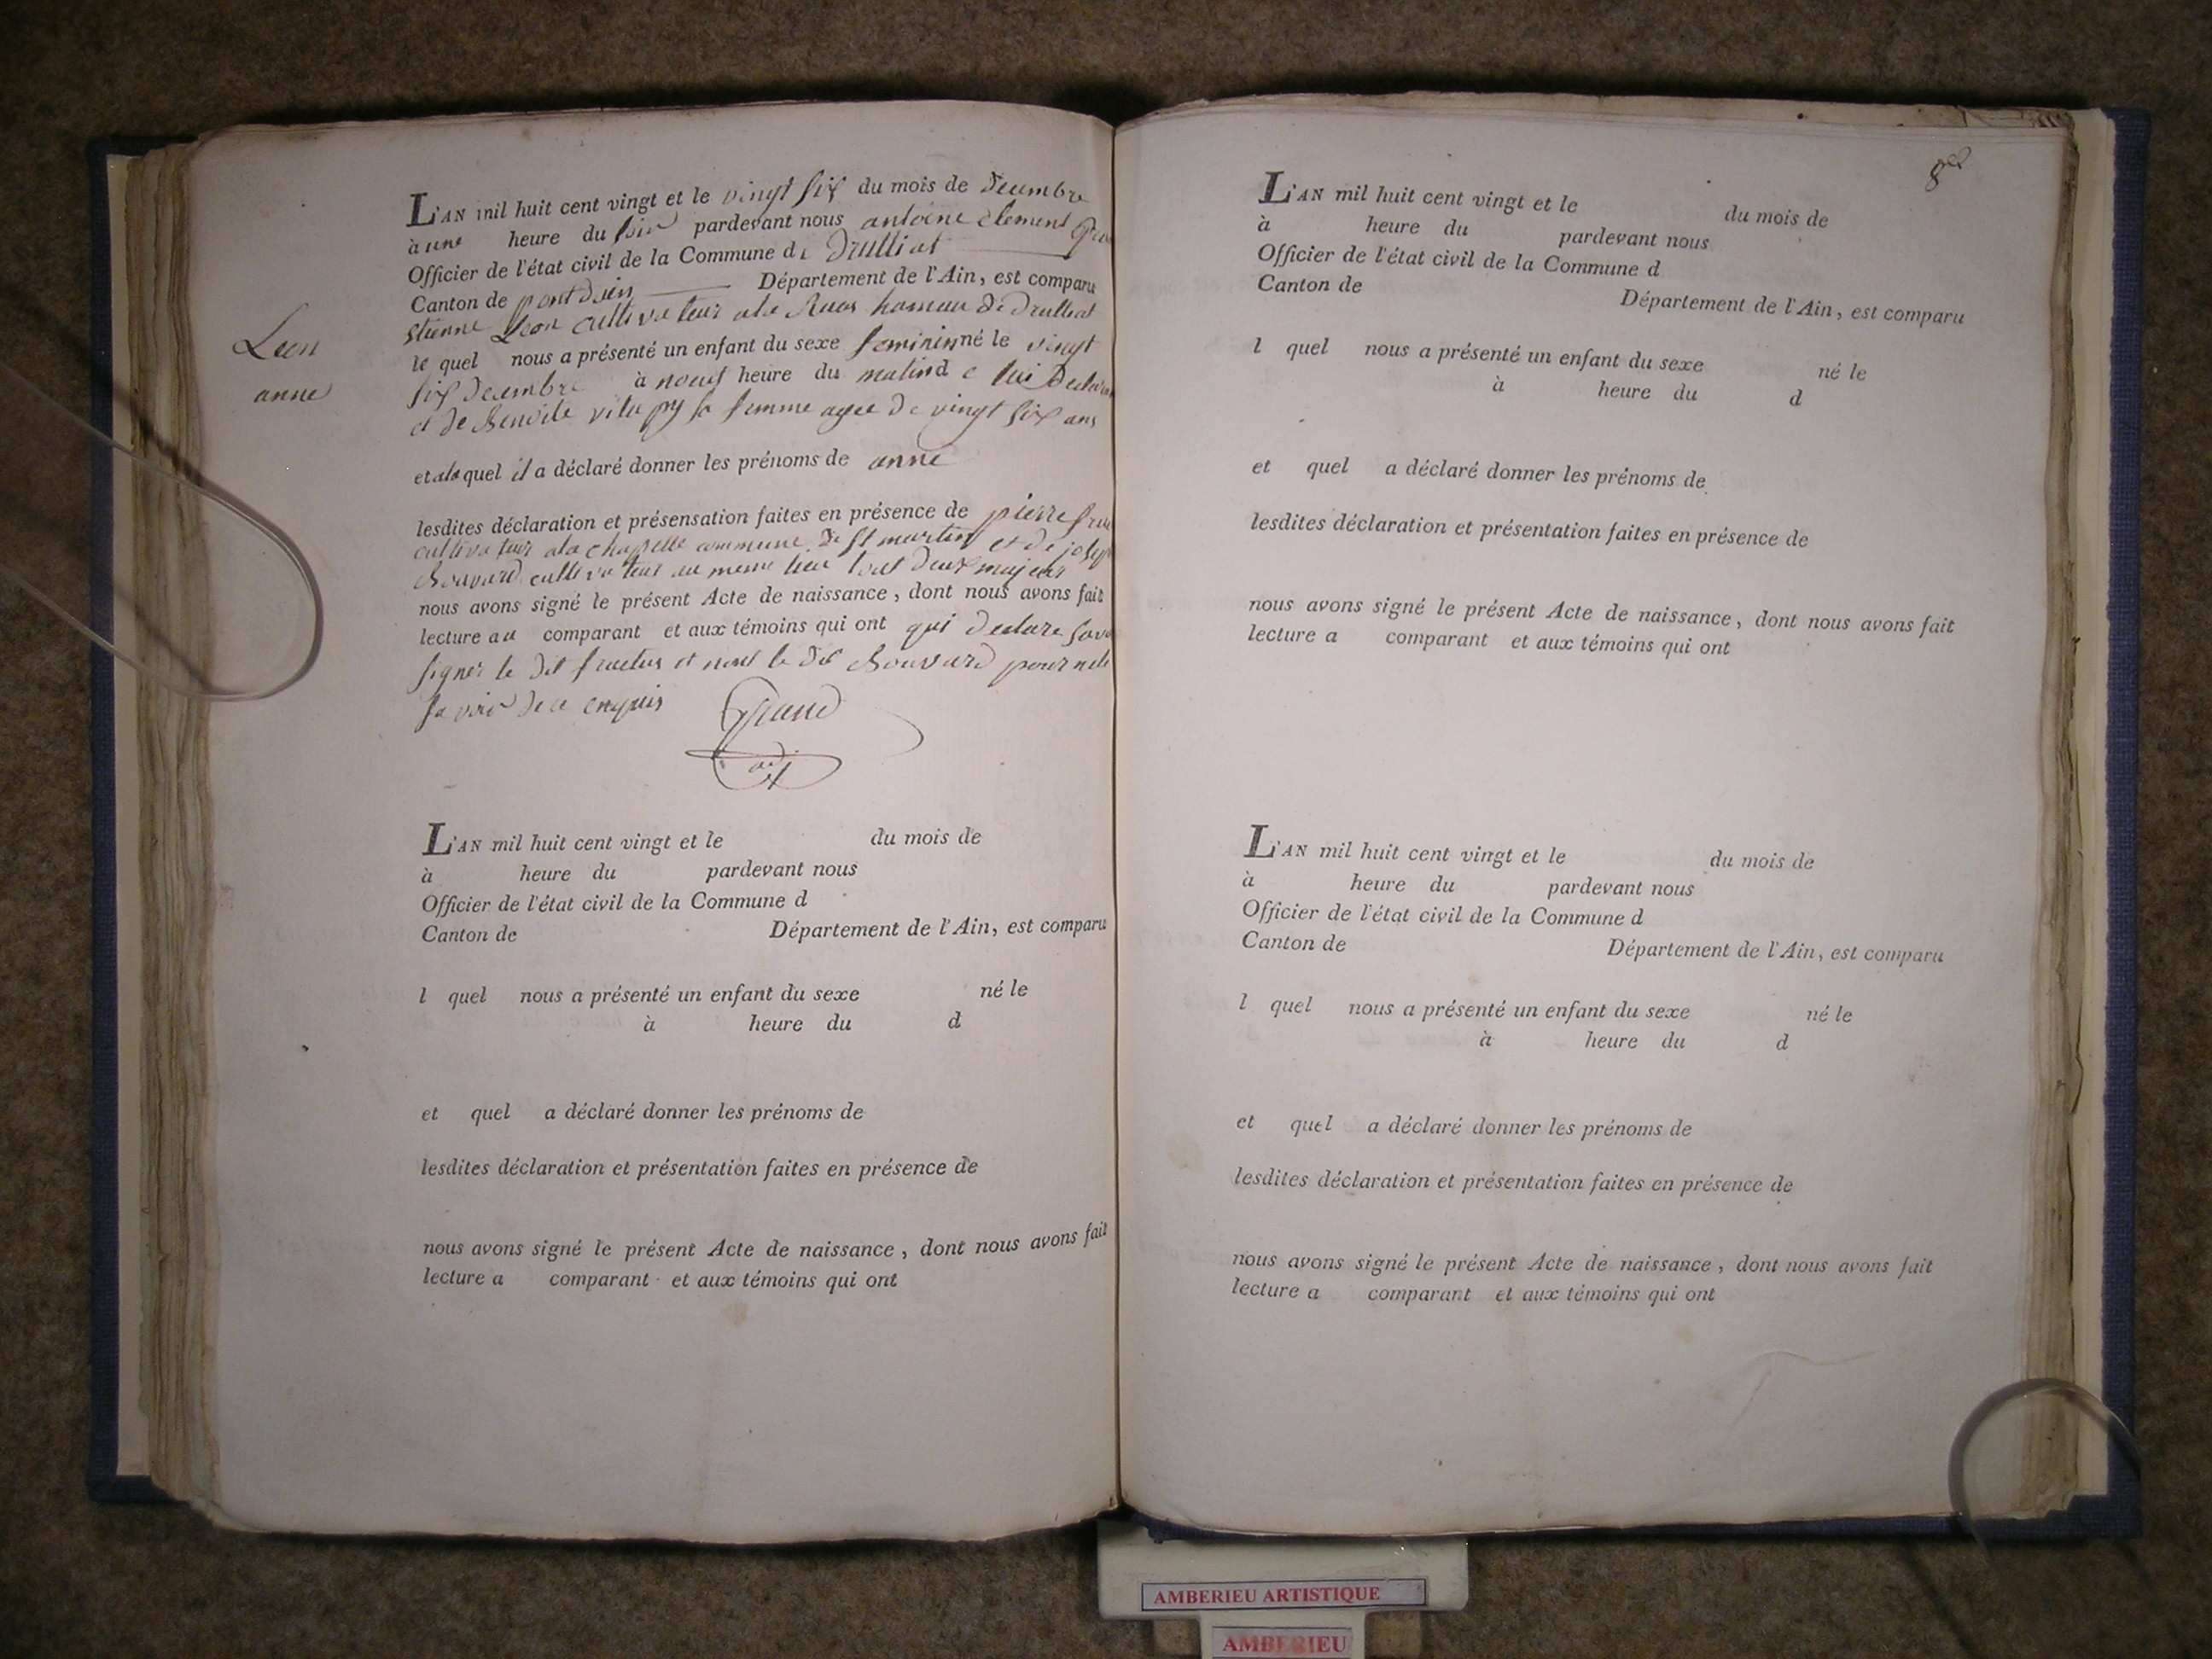 Leon
anne
L'AN mil huit cent vingt et le vingt six du mois de decembre
à une heure du soir pardevant nous antoine clement
Officier de l'état civil de la Commune de Drulliat
Canton de pont dain Département de l'Ain, est comparu
etienne Leon cultivateur hameau de drulliat
le quel nous a présenté un enfant du sexe feminin né le vingt
six decembre à neuf heure du matin de lui
et de Benoite sa femme agee de vingt six ans
et a quel il a déclaré donner les prénoms de anne
lesdites déclaration et présensation faites en présence de pierre
cultivateur a la chapelle commune de st martin et de
Bouvard cultivateur au meme lieu tout deux majeurs
nous avons signé le présent Acte de naissance, dont nous avons fait
lecture au comparant et aux témoins qui ont qui declare
signer le dit fructus et non le dit Bouvard pour
savoir de ce enquis
Grand
adj
L'AN mil huit cent vingt et le du mois de
à heure du pardevant nous
Officier de l'état civil de la Commune d
Canton de Département de l'Ain, est comparu
l quel nous a présenté un enfant du sexe né le
à heure du d
et quel a déclaré donner les prénoms de
lesdites déclaration et présentation faites en présence de
nous avons signé le présent Acte de naissance, dont nous avons fait
lecture a comparant et aux témoins qui ont
L'AN mil huit cent vingt et le du mois de
à heure du pardevant nous
Officier de l'état civil de la Commune d
Canton de Département de l'Ain, est comparu
l quel nous a présenté un enfant du sexe né le
à heure du d
et quel a déclaré donner les prénoms de
lesdites déclaration et présentation faites en présence de
nous avons signé le présent Acte de naissance, dont nous avons fait
lecture a comparant et aux témoins qui ont
L'AN mil huit cent vingt et le du mois de
à heure du pardevant nous
Officier de l'état civil de la Commune d
Canton de Département de l'Ain, est comparu
l quel nous a présenté un enfant du sexe né le
à heure du d
et quel a déclaré donner les prénoms de
lesdites déclaration et présentation faites en présence de
nous avons signé le présent Acte de naissance, dont nous avons fait
lecture a comparant et aux témoins qui ont
AMBERIEU ARTISTIQUE
AMBERIEU